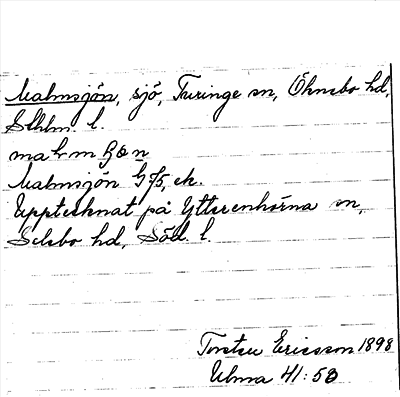 Malmsjön, sjö, Turinge sn, Öknebo hd,
Sthlm. l.
malmʃön
Malmsjön G f5, ek.
Upptecknat på Ytterenhörna sn,
Selebo hd, Söd. l.
Torsten Ericsson 1898
Ulma 41:58